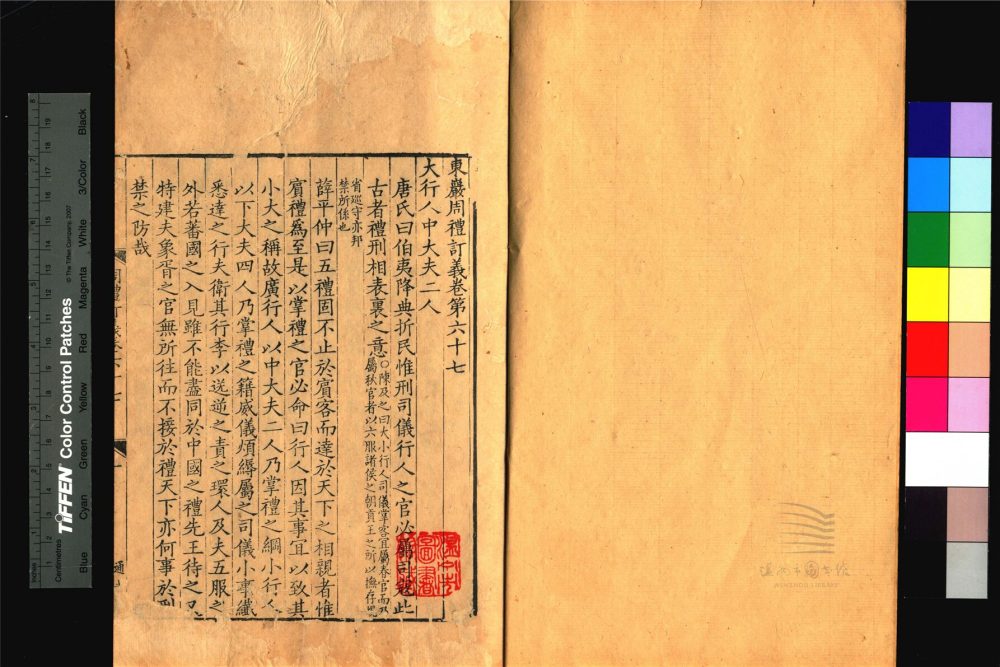 東巖周禮訂義卷第六十七
大行人中大夫二人
唐氏曰伯夷降典折民惟刑司儀行人之官必屬司寇此
古者禮刑相表裏之意○陳及之曰大小行人司儀掌客宜屬春官而乃
屬秋官者以六服諸侯之朝貢王之所以撫存
省巡守亦邦
禁所係也
薛平仲曰五禮固不止於賓客而達於天下之相親者惟
賓禮爲至是以掌禮之官必命曰行人因其事宜以致其
小大之稱故廣行人以中大夫二人乃掌禮之綱小行人
以下大夫四人乃掌禮之籍威儀煩縟屬之司儀小事纖
悉達之行夫衛其行李以送逆之責之環人及夫五服之
外若蕃國之入見雖不能盡同於中國之禮先王待之又
特建夫象胥之官無所往而不接於禮天下亦何事於刑
禁之防哉
TIFFEN Color Control Patches
© The Tiffen Company, 2007
Inches
Centimetres
Blue Cyan Green Yellow Red Magenta White 3/Color Black
溫州市圖書館
WENZHOU LIBRARY